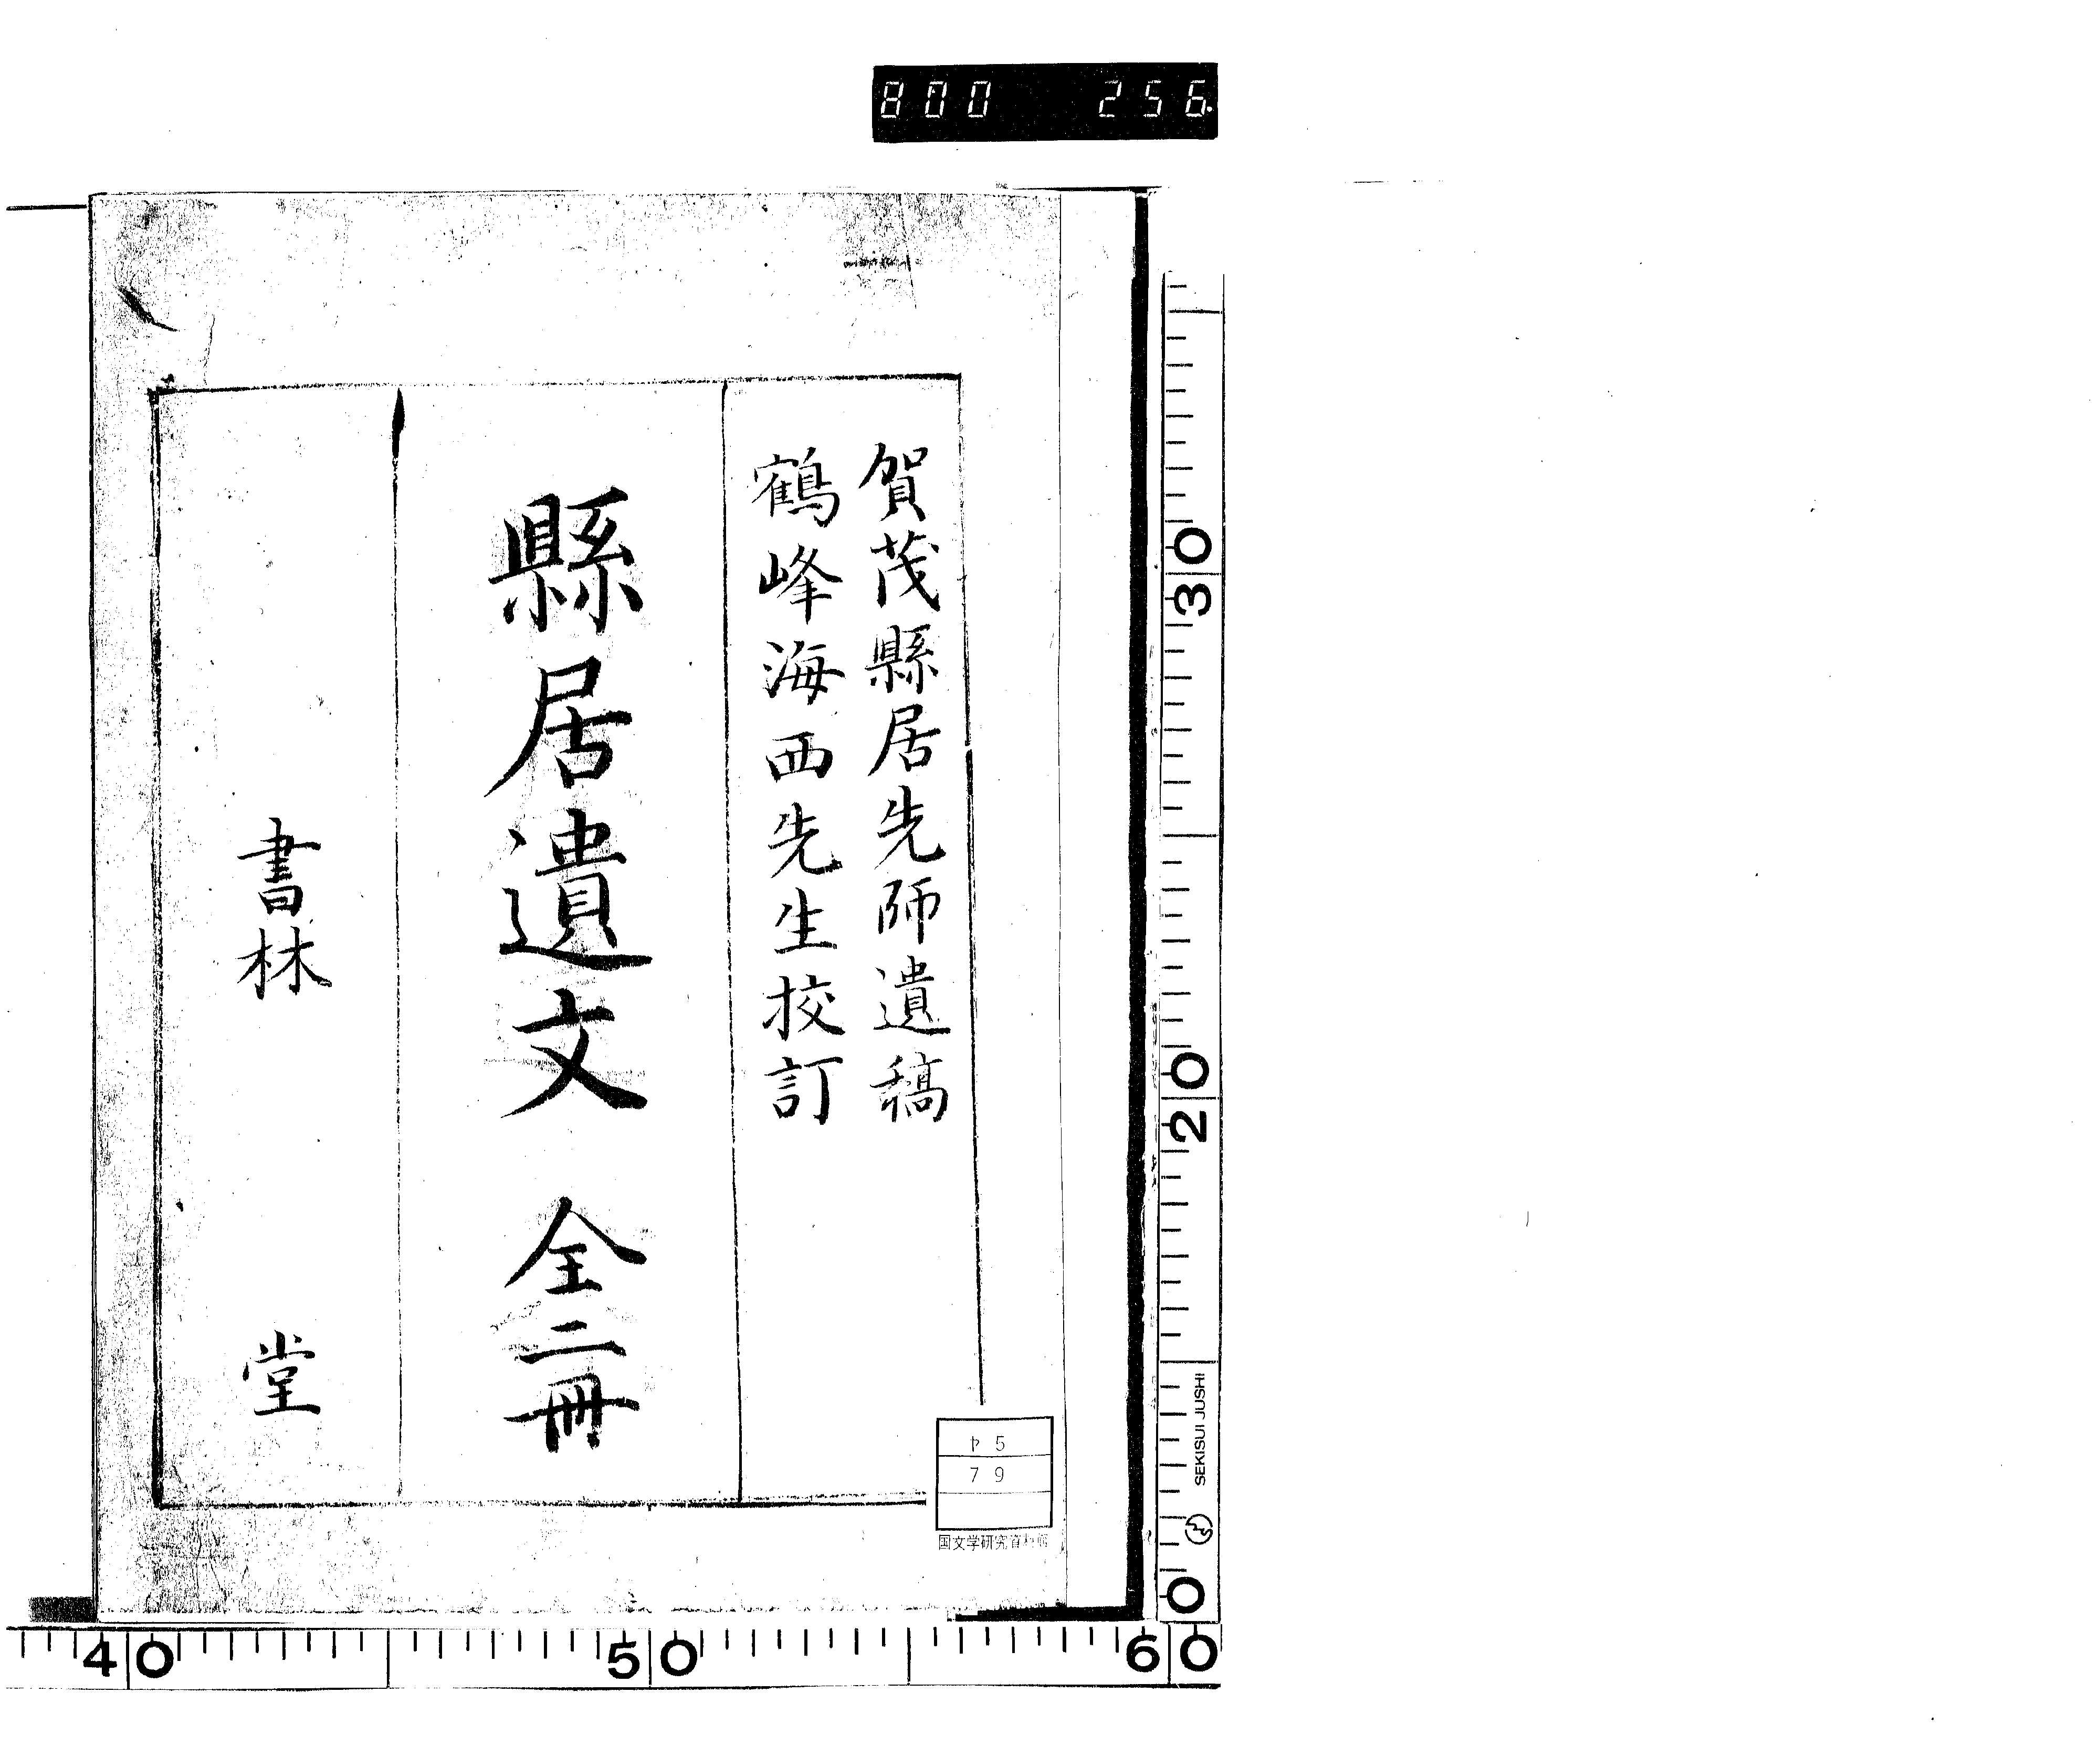 800 256.
賀茂縣居先師遺稿
鶴峰海西先生校訂
縣居遺文 全二冊
書林 堂
ヤ5
79
国文学研究資料館
30
20
SEKISUI JUSHI
0
40
50
60